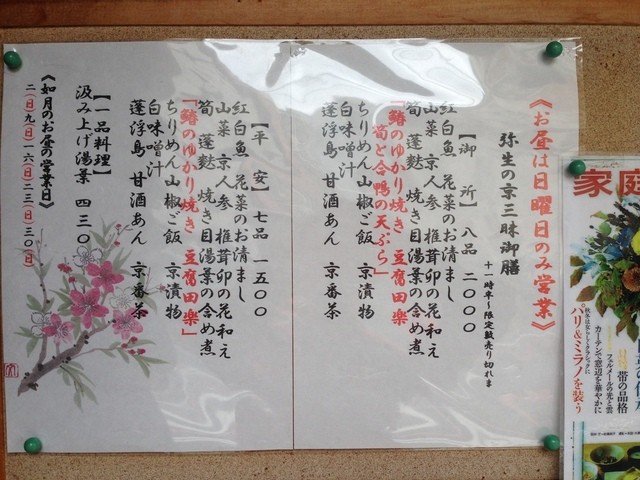 《お昼は日曜日のみ営業》
弥生の京三昧御膳
十一時半～限定数売り切れま
【御所】八品 二〇〇〇
紅白魚 花菜のお清まし
山菜 京人参 椎茸卯の花和え
筍 蓬麩 焼き目湯葉の含め煮
「鰆のゆかり焼き 豆腐田楽
筍と合鴨の天ぷら」
ちりめん山椒ご飯 京漬物
白味噌汁
蓬浮島 甘酒あん 京番茶
【平安】七品 一五〇〇
紅白魚 花菜のお清まし
山菜 京人参 椎茸卯の花和え
筍 蓬麩 焼き目湯葉の含め煮
「鰆のゆかり焼き 豆腐田楽」
ちりめん山椒ご飯 京漬物
白味噌汁
蓬浮島 甘酒あん 京番茶
【一品料理】
汲み上げ湯葉 四三〇
《如月のお昼の営業日》
二(日)九(日)一六(日)二三(日)三〇(日)
家庭
カーテンで窓辺を華やかに
フェルメールの光と雲
帯の品格
パリ&ミラノを装う